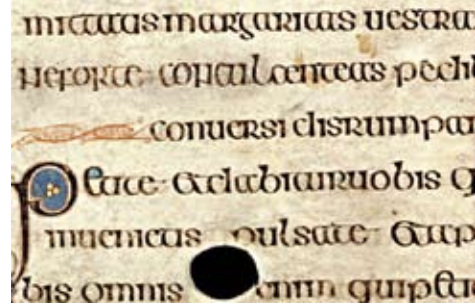 mittatis margaritas uestra
neforte conculcenteas pedib
conuersi disrumpan
Petite etdabituruobis q
inuenietis pulsate etap
bis omnis enim quipetit